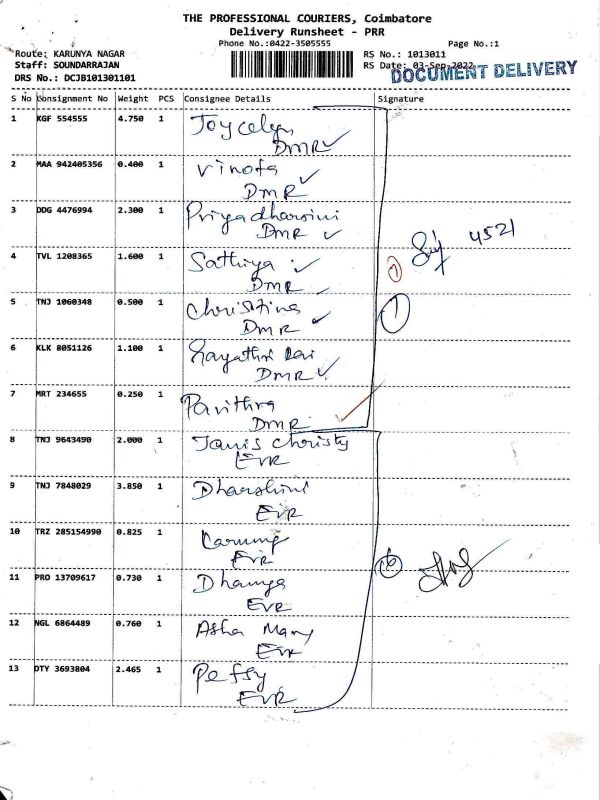 THE PROFESSIONAL COURIERS, Coimbatore
Delivery Runsheet - PRR
Phone No.:0422-3505555
Page No.:1
Route: KARUNYA NAGAR
RS No.: 1013011
Staff: SOUNDARRAJAN
RS Date: 03-Sep-2022
DOCUMENT DELIVERY
DRS No.: DCJB101301101
S No Consignment No Weight PCS Consignee Details Signature
1 KGF 554555 4.750 1 Joycelyn
DMR
2 MAA 942405356 0.400 1 Vinota
DMR
3 DDG 4476994 2.300 1 Priyadharsini
DMR
4521
4 TVL 1208365 1.600 1 Sathiya
DMR
5 TNJ 1060348 0.500 1 Christina
DMR
6 KLK 8051126 1.100 1 Gayathri
DMR
7 MRT 234655 0.250 1 Pavithra
DMR
8 TNJ 9643490 2.000 1 Janis Christy
EVR
9 TNJ 7848029 3.850 1 Dharshini
EVR
10 TRZ 285154990 0.825 1
EVR
11 PRO 13709617 0.730 1 Dhanya
EVR
12 NGL 6864489 0.760 1 Asha Mary
EVR
13 DTY 3693804 2.465 1 Peffsy
EVR